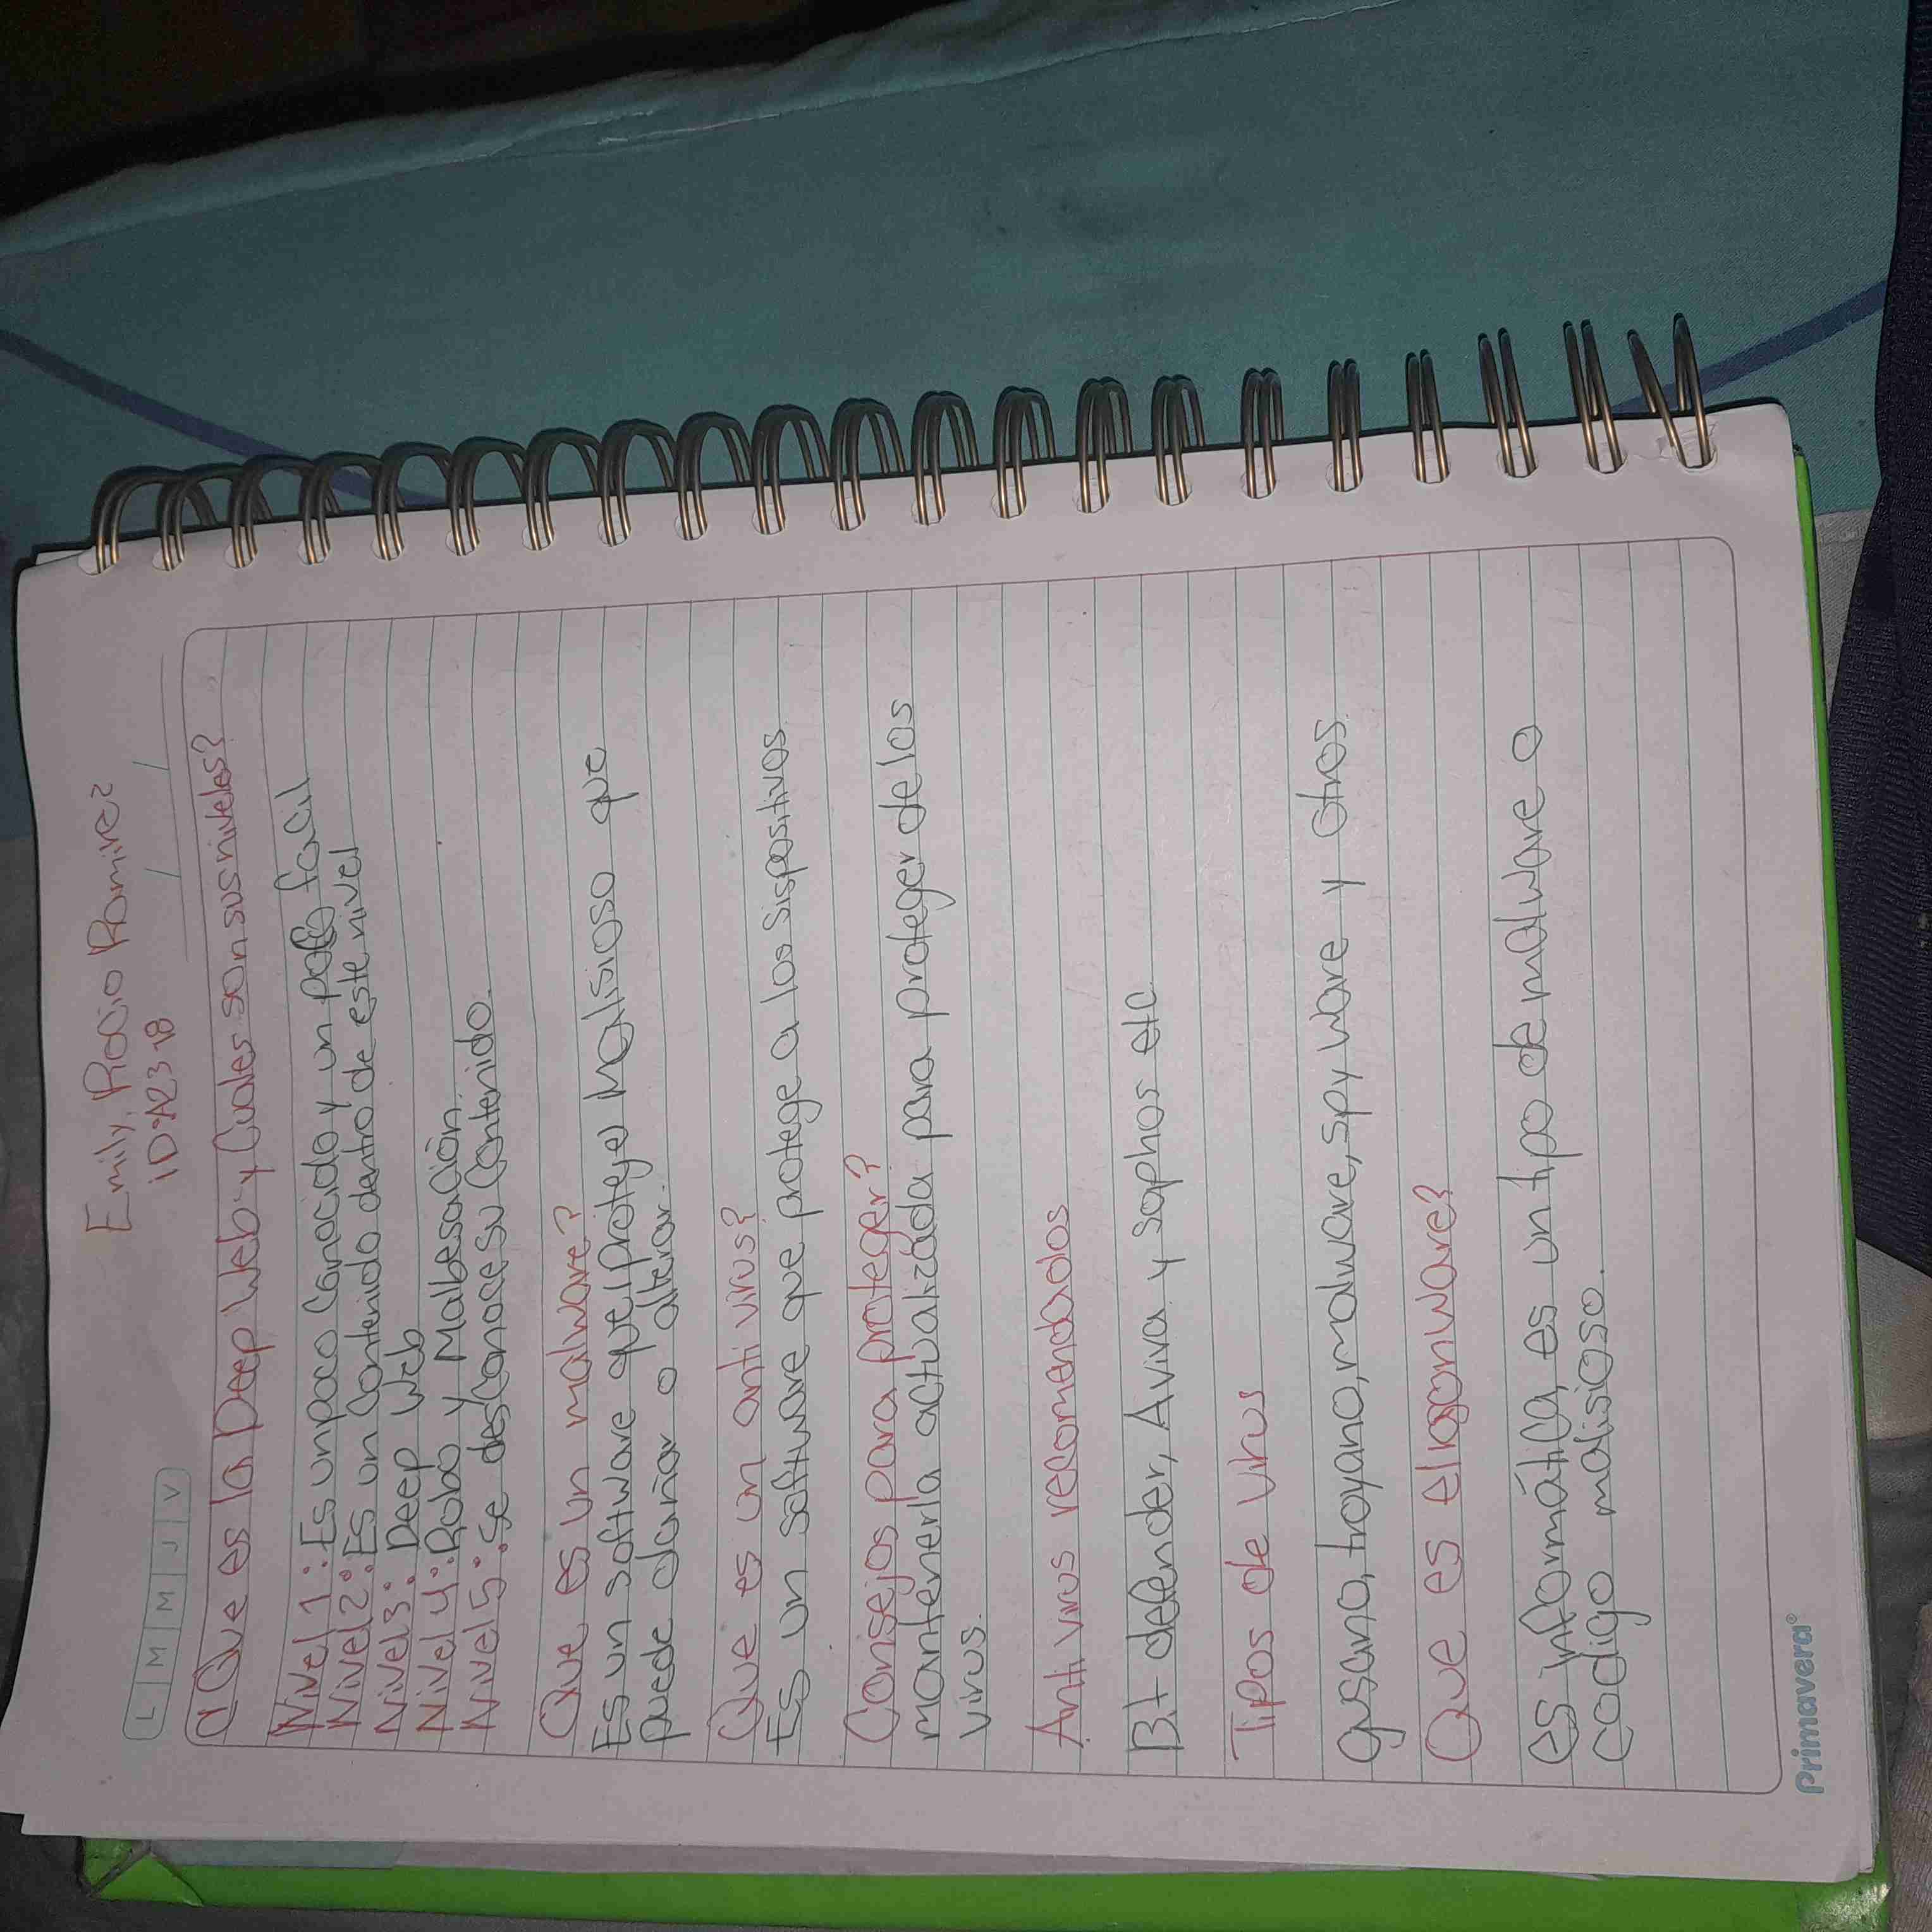 Emily Rocio Ramirez
ID:A2318
L M M J V
Que es la Deep Web y Cuales son sus niveles?
Nivel 1: Es un poco Conocido y un poco facil
Nivel 2: Es un Contenido dentro de este nivel
Nivel 3: Deep Web
Nivel 4: Robo y Malbesación.
Nivel 5: se desconoce su Contenido.
Que es un malware?
Es un software que protege Malisioso que
puede dañar o alterar.
Que es un anti virus?
Es un software que protege a los Sispositivos
Consejos para proteger?
mantenerla actualizada para proteger de los
virus.
Anti virus recomendados
Bit defender, Avira y sophos etc.
Tipos de virus
gusano, troyano, malware, spy ware y otros.
Que es
es informática, es un tipo de malware o
codigo malisioso.
Primavera®